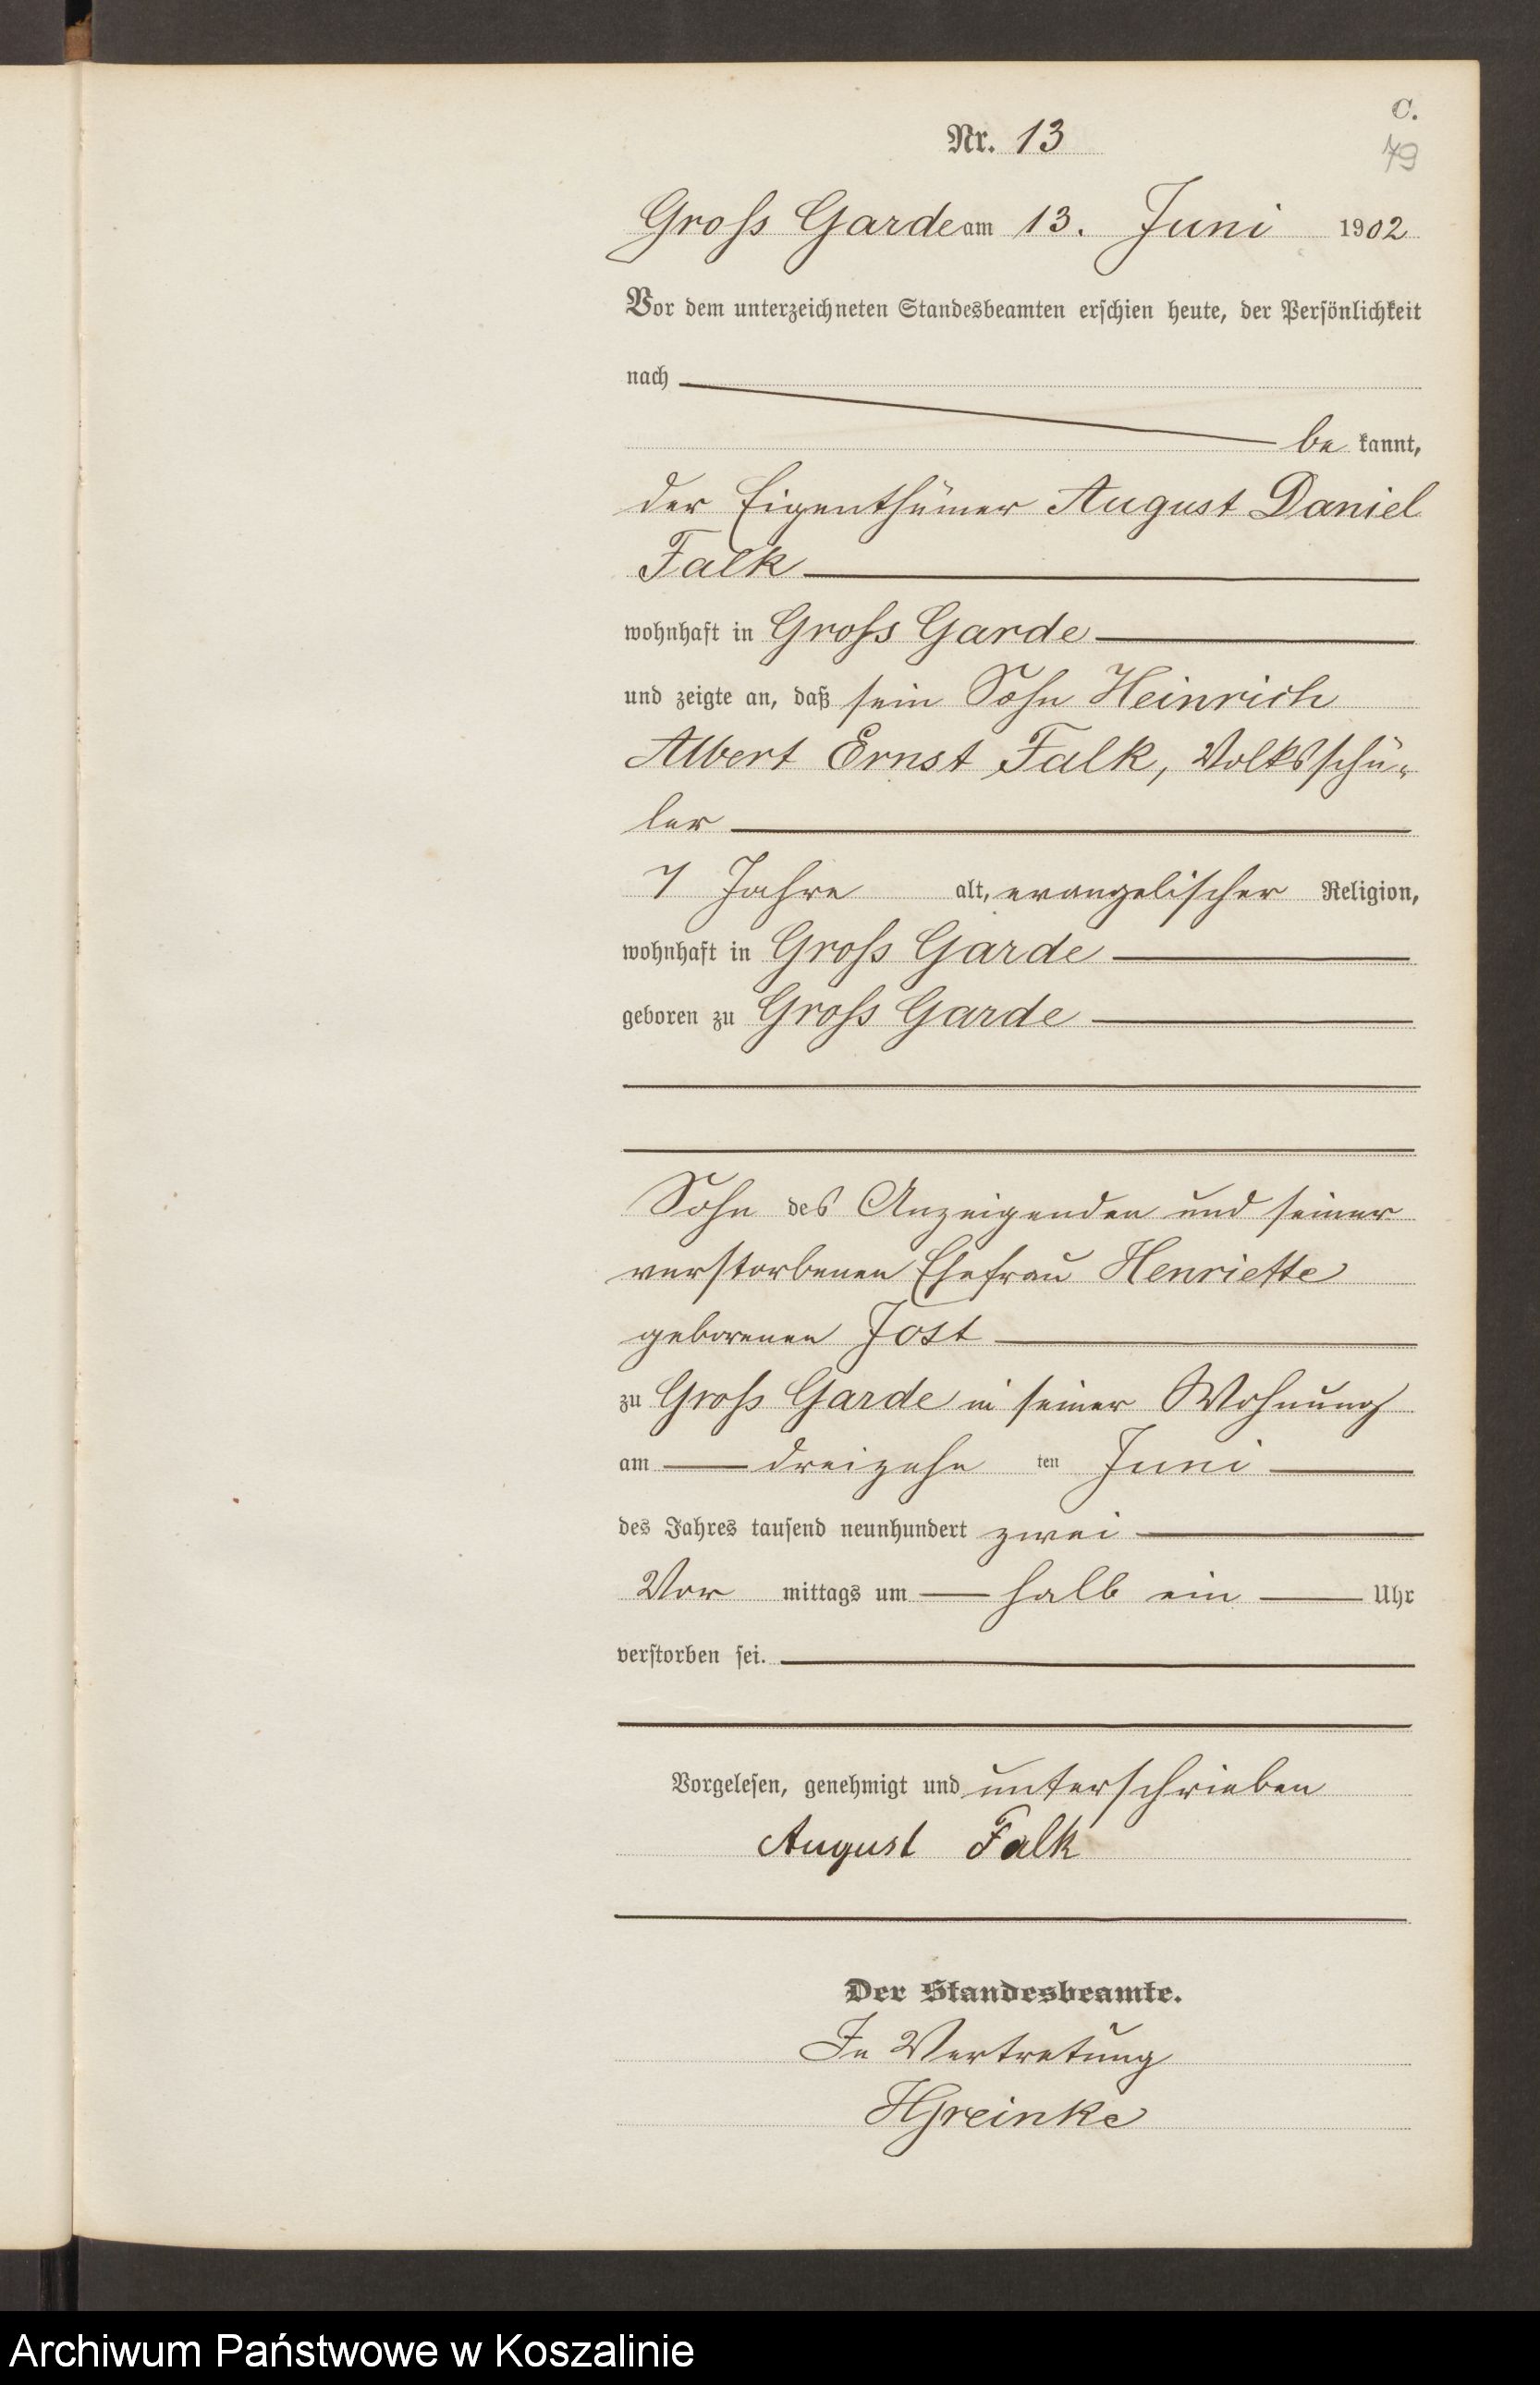 C.
Nr. 13
79
Groß Garde am 13. Juni 1902
Vor dem unterzeichneten Standesbeamten erschien heute, der Persönlichkeit
nach
be kannt,
der Eigenthümer August Daniel
Falk
wohnhaft in Groß Garde
und zeigte an, daß sein Sohn Heinrich
Albert Ernst Falk, Volksschü-
ler
7 Jahre alt, evangelischer Religion,
wohnhaft in Groß Garde
geboren zu Groß Garde
Sohn des Anzeigenden und seiner
verstorbenen Ehefrau Henriette
geborenen Jost
zu Groß Garde in seiner Wohnung
am dreizehn ten Juni
des Jahres tausend neunhundert zwei
Vor mittags um halb ein Uhr
verstorben sei.
Vorgelesen, genehmigt und unterschrieben
August Falk
Der Standesbeamte.
In Vertretung
HGreinke
Archiwum Państwowe w Koszalinie